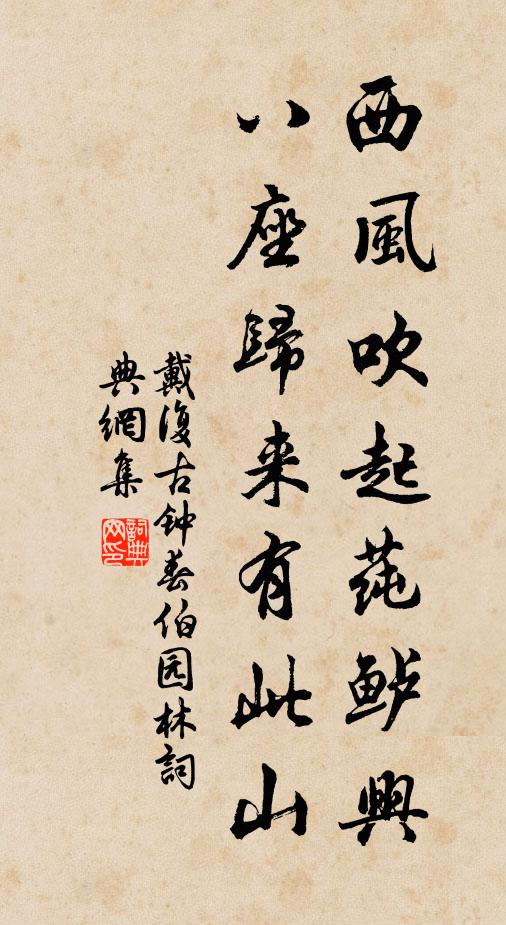 西風吹起蒓鲈興
八座歸来有此山
戴復古钟春伯园林詞
典網集
詞典網印